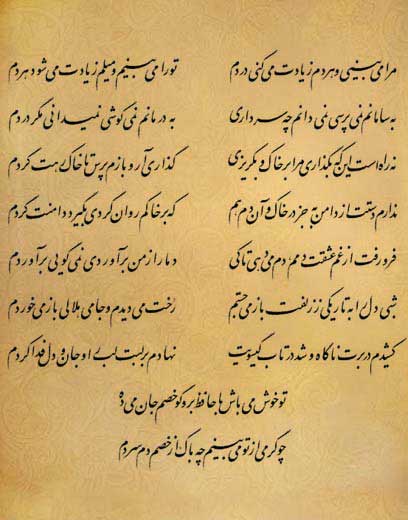 مرا می‌بینی و هردم زیادت می‌کنی دردم تو را می‌بینم و میلم زیادت می‌شود هر دم
به سامانم نمی‌پرسی نمی‌دانم چه سر داری به درمانم نمی‌کوشی نمی‌دانی مگر دردم
نه راه است این که بگذاری مرا بر خاک و بگریزی گذاری آر و بازم پرس تا خاک رهت گردم
ندارم دستت از دامن به جز در خاک و آن دم هم که بر خاکم روان گردی بگیرد دامنت گردم
فرو رفت از غم عشقت دمم دم می‌دهی تا کی دمار از من برآوردی نمی‌گویی برآوردم
شبی دل را به تاریکی ز زلفت باز می‌جستم رخت می‌دیدم و جامی هلالی باز می‌خوردم
کشیدم در برت ناگاه و شد در تاب گیسویت نهادم بر لبت لب را و جان و دل فدا کردم
تو خوش می‌باش با حافظ برو گو خصم جان می‌ده
چو گرمی از تو می‌بینم چه باک از خصم دم سردم